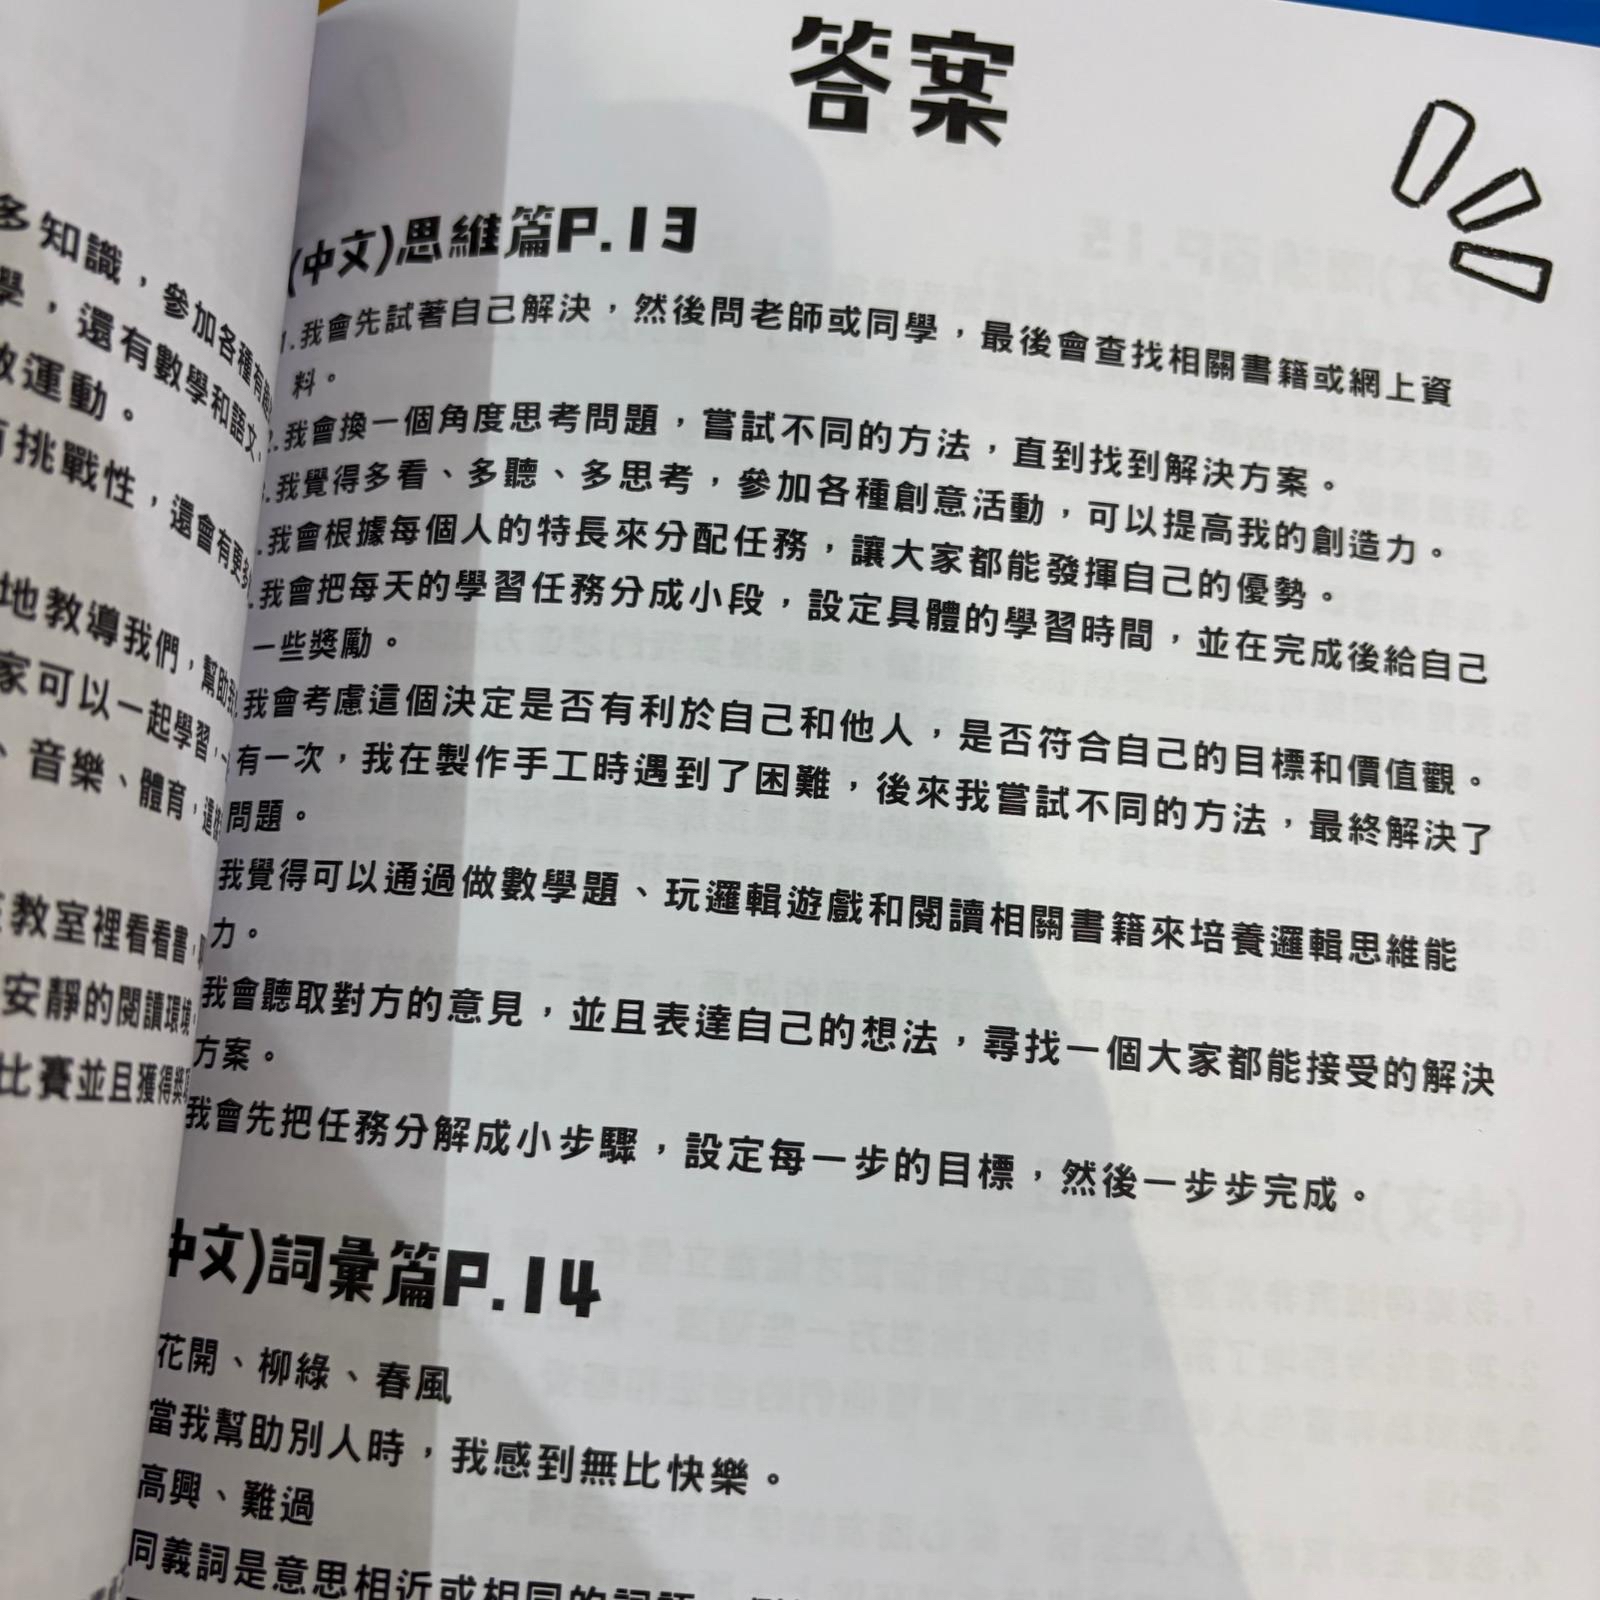 答案
多知識，參加各種有趣
學，還有數學和語文。
做運動。
有挑戰性，還會有更多
地教導我們，幫助我
家可以一起學習，
、音樂、體育，這
教室裡看看書，
安靜的閱讀環境，
比賽並且獲得獎
(中文)思維篇P.13
1.我會先試著自己解決，然後問老師或同學，最後會查找相關書籍或網上資
料。
2.我會換一個角度思考問題，嘗試不同的方法，直到找到解決方案。
3.我覺得多看、多聽、多思考，參加各種創意活動，可以提高我的創造力。
.我會根據每個人的特長來分配任務，讓大家都能發揮自己的優勢。
.我會把每天的學習任務分成小段，設定具體的學習時間，並在完成後給自己
一些獎勵。
.我會考慮這個決定是否有利於自己和他人，是否符合自己的目標和價值觀。
有一次，我在製作手工時遇到了困難，後來我嘗試不同的方法，最終解決了
問題。
我覺得可以通過做數學題、玩邏輯遊戲和閱讀相關書籍來培養邏輯思維能
力。
我會聽取對方的意見，並且表達自己的想法，尋找一個大家都能接受的解決
方案。
我會先把任務分解成小步驟，設定每一步的目標，然後一步步完成。
中文)詞彙篇P.14
花開、柳綠、春風
當我幫助別人時，我感到無比快樂。
高興、難過
同義詞是意思相近或相同的詞語，